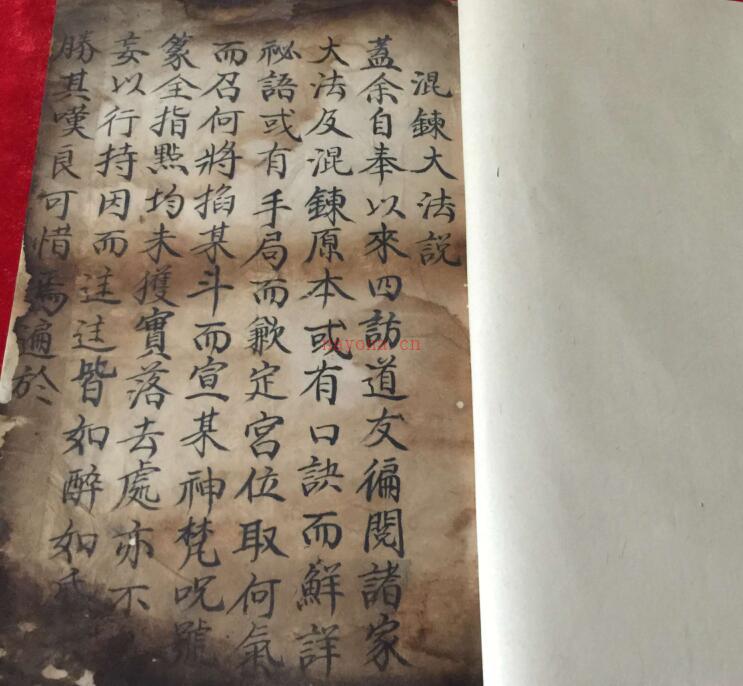 混鍊大法説
蓋余自奉以來四訪道友徧閱諸家
大法及混鍊原本或有口訣而鮮詳
祕語或有手局而歉定宮位取何氣
而召何將掐某斗而宣某神梵呪號
篆全指點均未獲實落去處亦不
妄以行持因而迬迬皆如醉如
勝其嘆良可惜焉遍於
nayona.cn